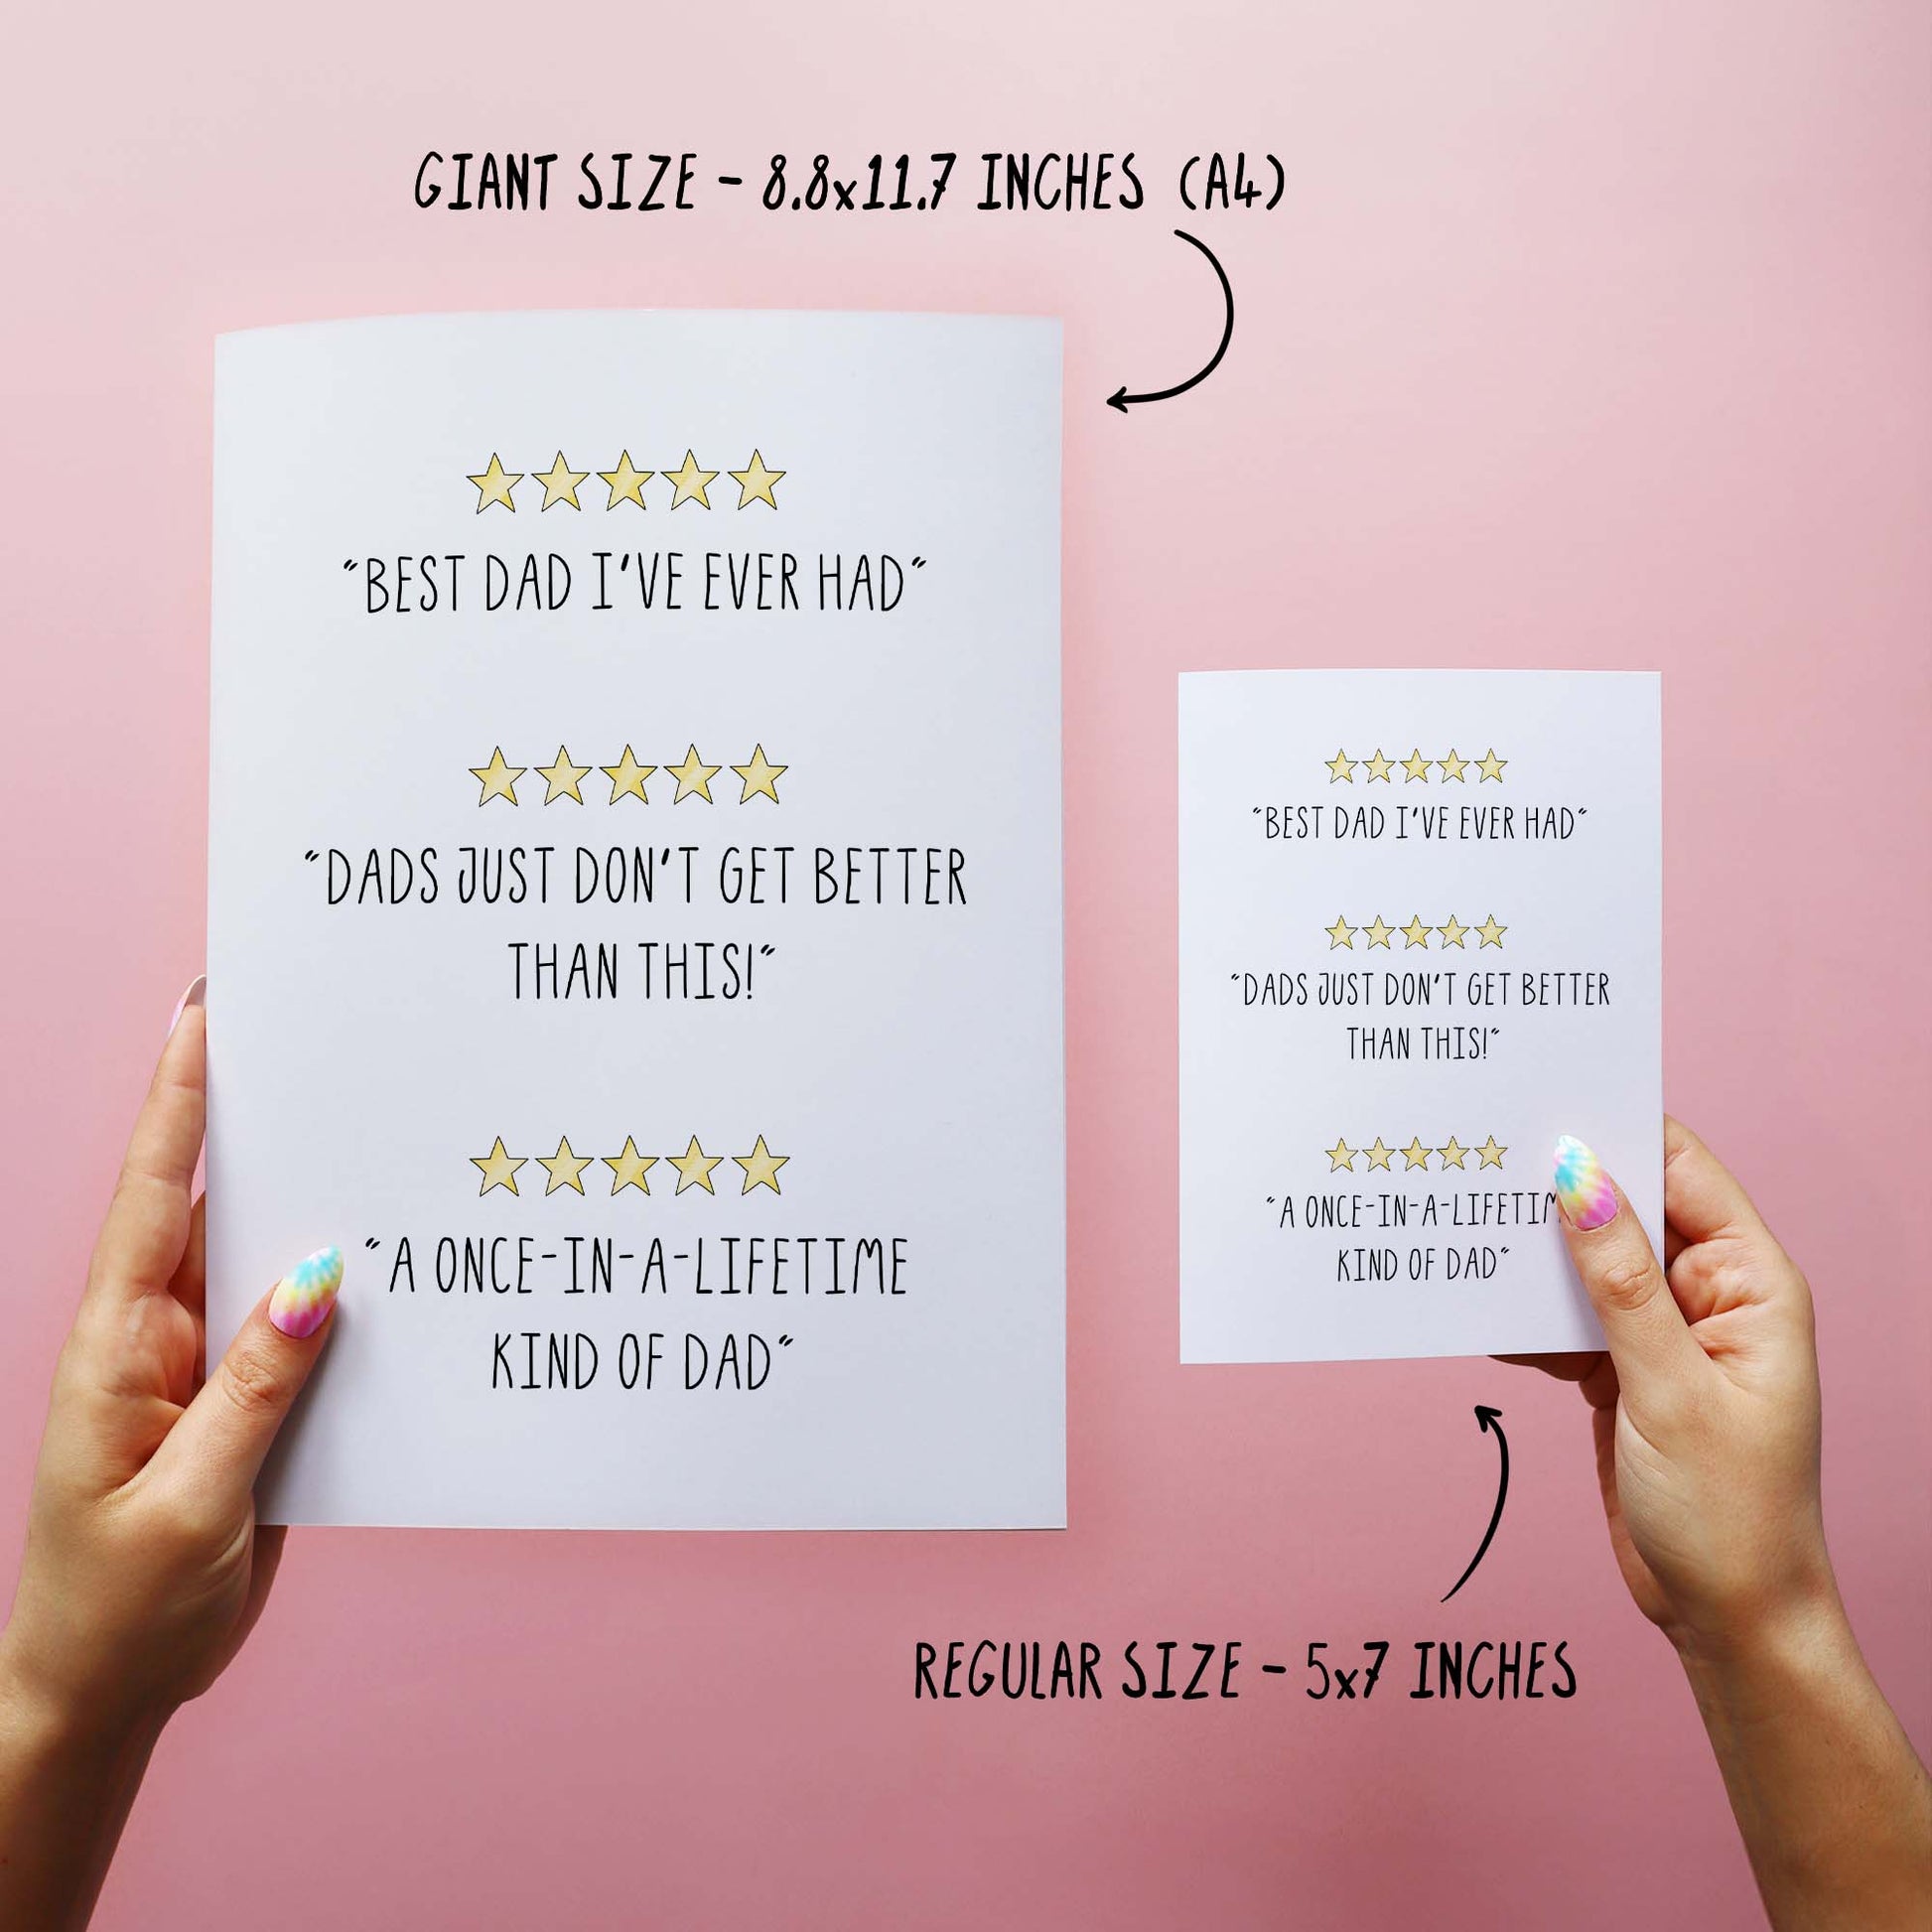 GIANT SIZE - 8.8x11.7 INCHES (A4)
"BEST DAD I'VE EVER HAD"
"DADS JUST DON'T GET BETTER
THAN THIS!"
"A ONCE-IN-A-LIFETIME
KIND OF DAD"
"BEST DAD I'VE EVER HAD"
"DADS JUST DON'T GET BETTER
THAN THIS!"
"A ONCE-IN-A-LIFETIM
KIND OF DAD"
REGULAR SIZE - 5x7 INCHES